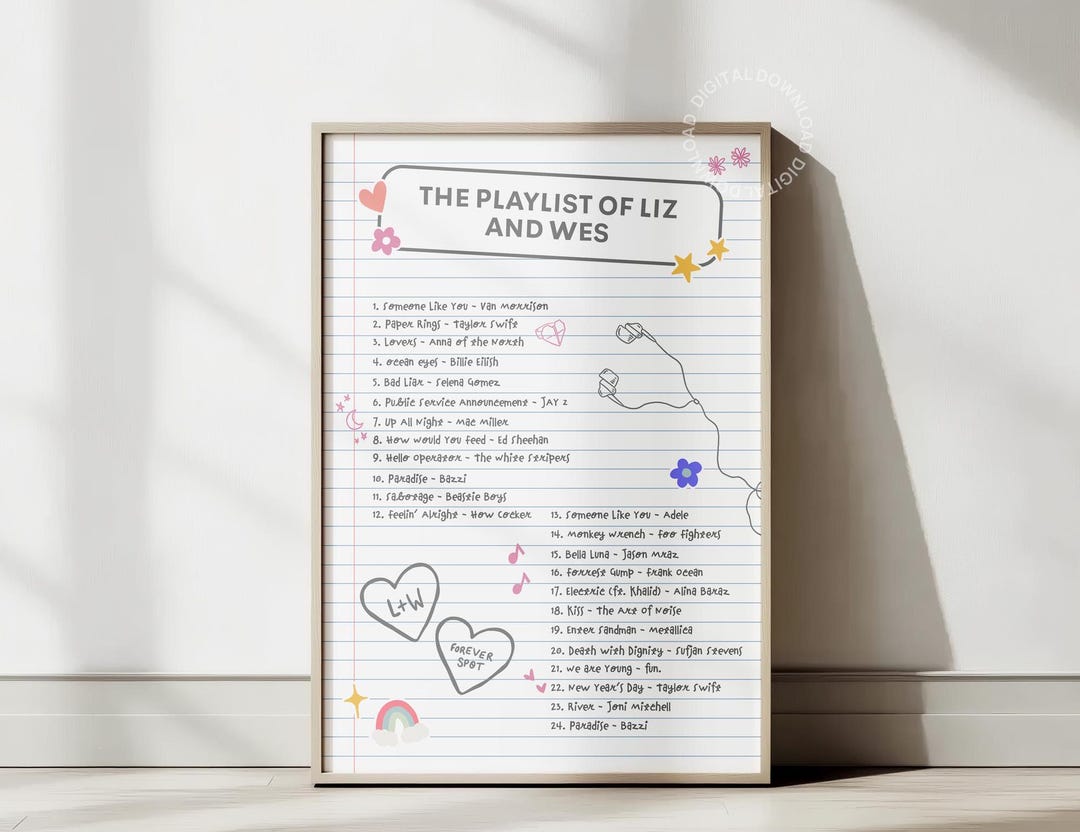 DIGITAL DOWNLOAD DIGITAL DOWNLOAD
THE PLAYLIST OF LIZ
AND WES
1. Someone Like You - Van Morrison
2. Paper Rings - Taylor Swift
3. Lovers - Anna of the North
4. ocean eyes - Billie Eilish
5. Bad Liar - Selena Gomez
6. Public Service Announcement - JAY Z
7. Up All Night - Mac Miller
8. How would You feed - Ed Sheehan
9. Hello operator - The white stripers
10. Paradise - Bazzi
11. Sabotage - Beastie Boys
12. feelin' Alright - How Cocker
13. Someone Like You - Adele
14. monkey wrench - foo fighters
15. Bella Luna - Jason Mraz
16. forrest Gump - frank ocean
17. Electric (ft. Khalid) - Alina Baraz
18. Kiss - The Art of Noise
19. Enter Sandman - Metallica
20. Death with Dignity - Sufjan Stevens
21. we are Young - fun.
22. New Year's Day - Taylor Swift
23. River - Joni Mitchell
24. Paradise - Bazzi
L+W
FOREVER
SPOT